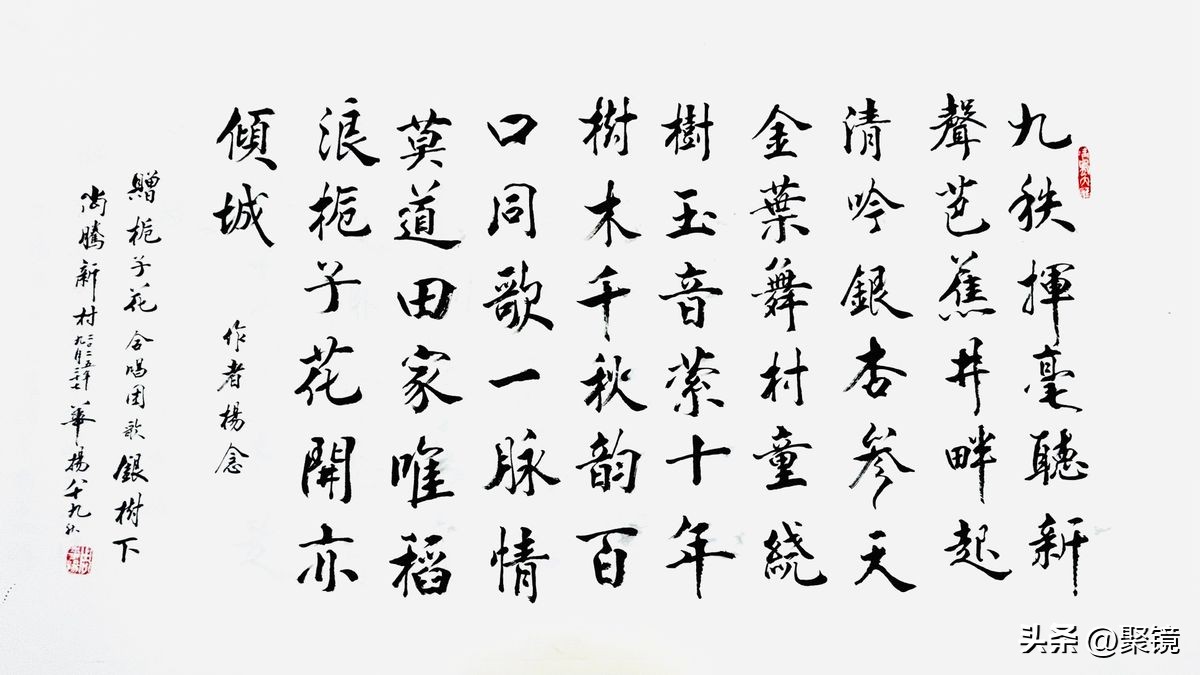 九秩揮毫聽新
聲芭蕉井畔起
清吟銀杏參天
金葉舞村童繞
樹玉音萦十年
樹木千秋韵百
口同歌一脉情
莫道田家唯稻
浪栀子花開亦
傾城
作者楊念
贈栀子花合唱团歌銀樹下
新村二〇二五年九月 華楊八十九秋
头条 @聚镜